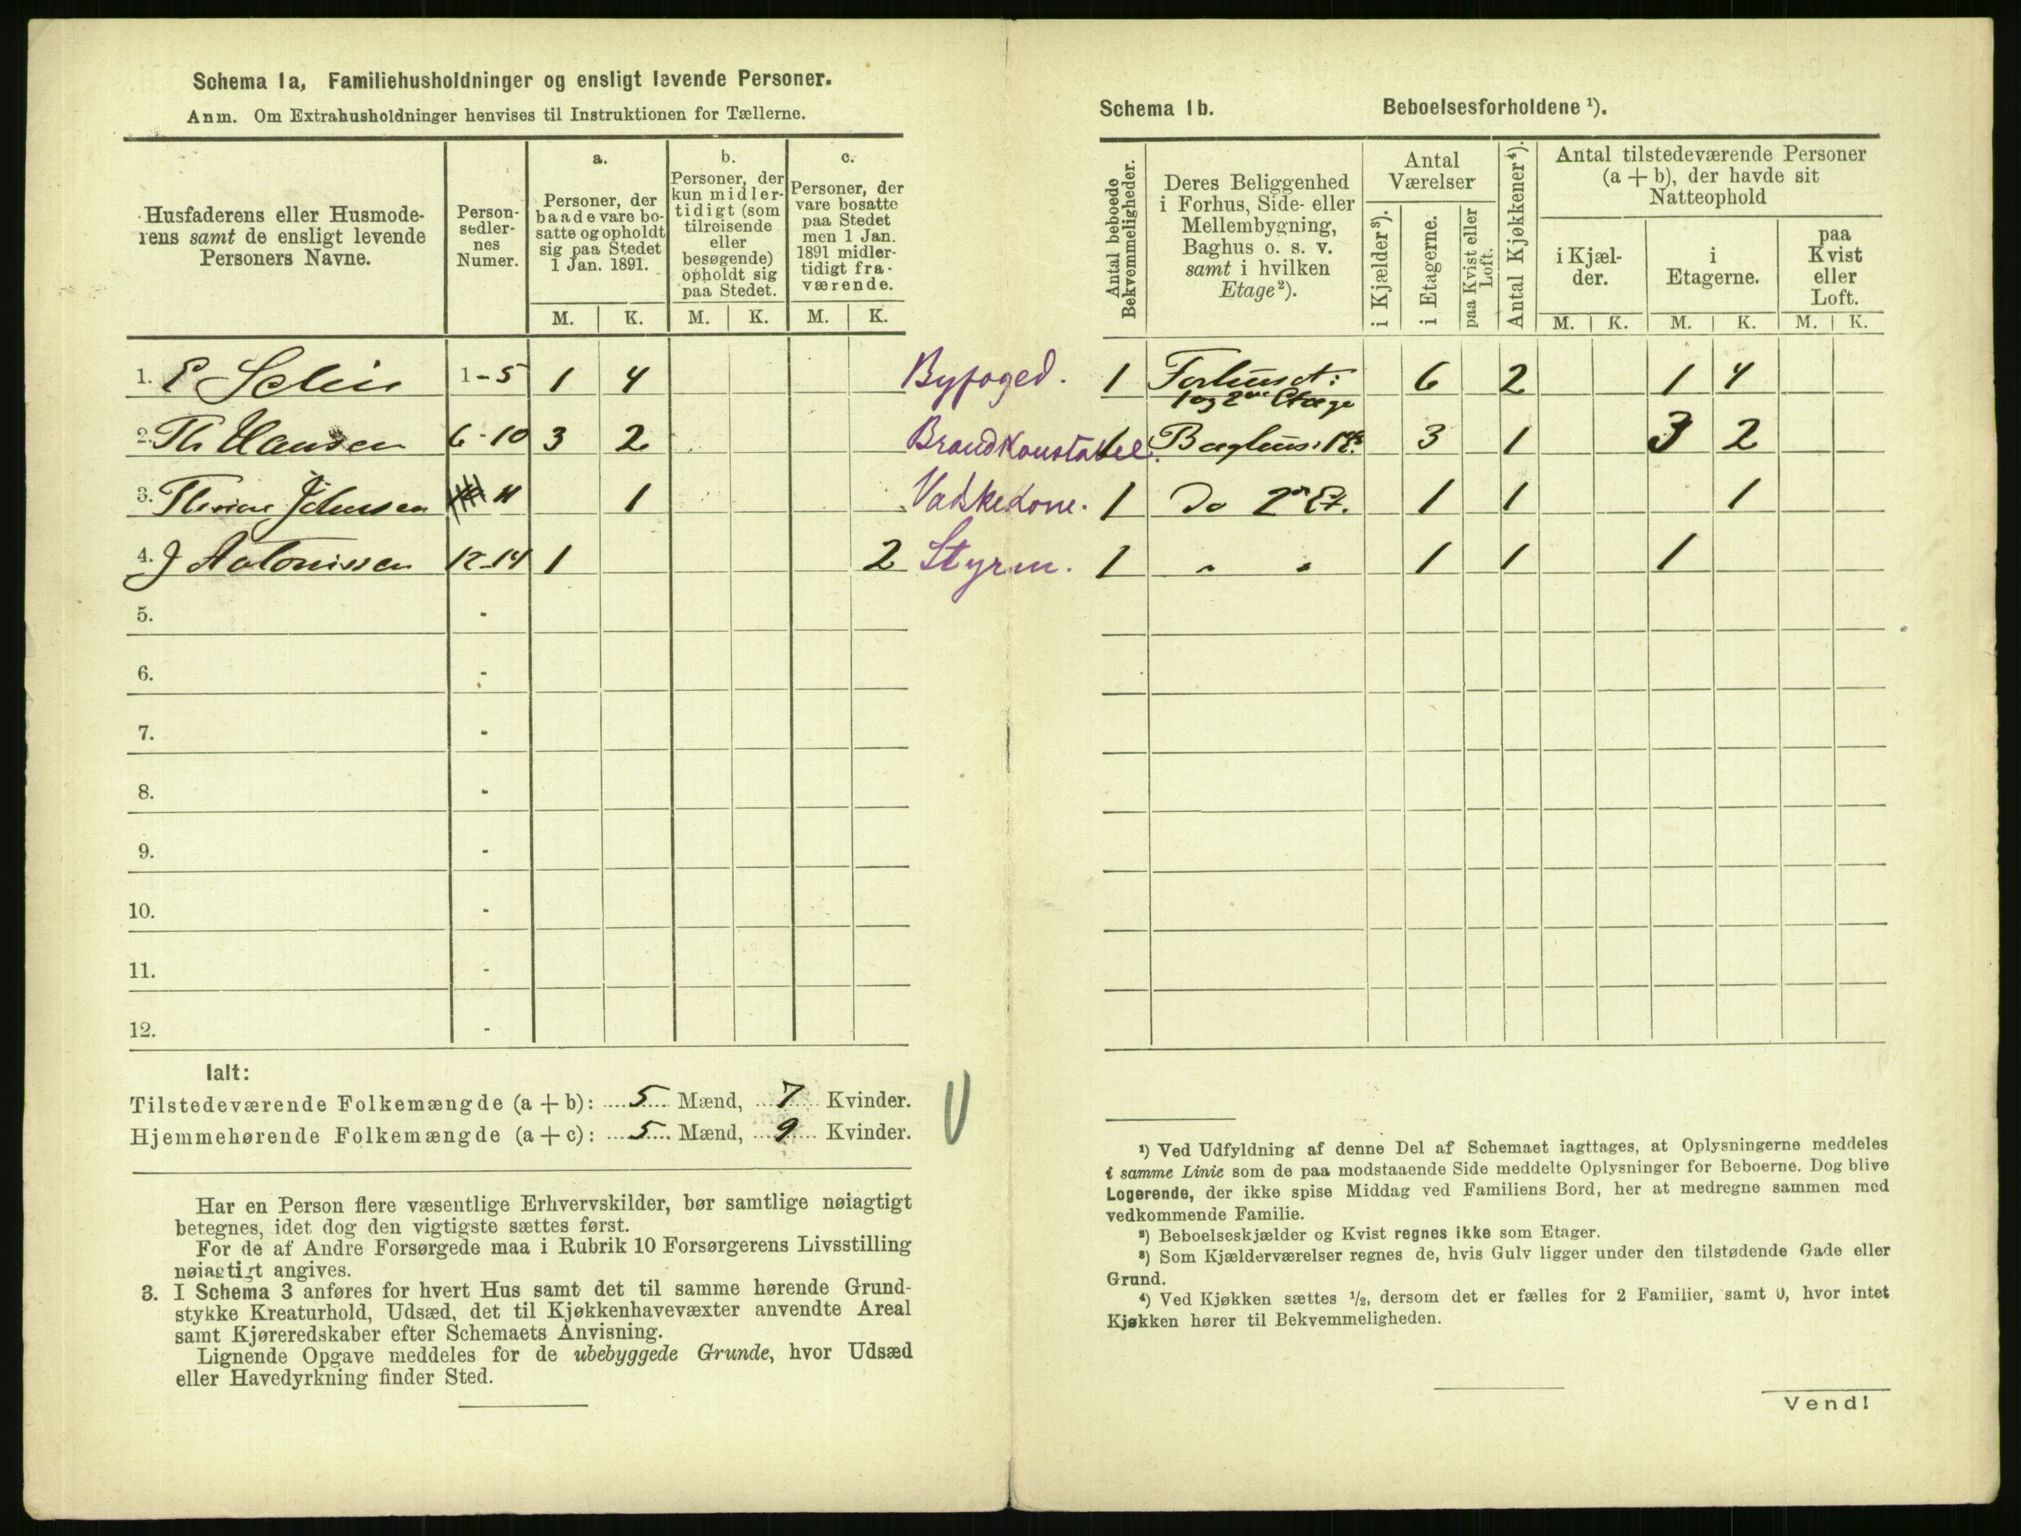 Schema 1a, Familiehusholdninger og ensligt levende Personer.
Anm. Om Extrahusholdninger henvises til Instruktionen for Tællerne.
Husfaderens eller Husmode-
rens samt de ensligt levende
Personers Navne.
Person-
sedler-
nes
Numer.
a.
Personer, der
baade vare bo-
satte og opholdt
sig paa Stedet
1 Jan. 1891.
b.
Personer, der
kun midler-
tidigt (som
tilreisende
eller
besøgende)
opholdt sig
paa Stedet.
c.
Personer, der
vare bosatte
paa Stedet
men 1 Jan.
1891 midler-
tidigt fra-
værende.
M. K. M. K. M. K.
1. E 1-5 1 4 Byfoged.
2. Th Hansen 6-10 3 2 Brandkonstabel.
3. Johnsen 11 1 Vaskekone.
4. J 12-14 1 2 Styrm.
5. -
6. -
7. -
8. -
9. -
10. -
11. -
12. -
Ialt:
Tilstedeværende Folkemængde (a+b): 5 Mænd, 7 Kvinder.
Hjemmehørende Folkemængde (a+c): 5 Mænd, 9 Kvinder.
Har en Person flere væsentlige Erhvervskilder, bør samtlige nøiagtigt
betegnes, idet dog den vigtigste sættes først.
For de af Andre Forsørgede maa i Rubrik 10 Forsørgerens Livsstilling
nøiagtigt angives.
3. I Schema 3 anføres for hvert Hus samt det til samme hørende Grund-
stykke Kreaturhold, Udsæd, det til Kjøkkenhavevæxter anvendte Areal
samt Kjøreredskaber efter Schemaets Anvisning.
Lignende Opgave meddeles for de ubebyggede Grunde, hvor Udsæd
eller Havedyrkning finder Sted.
Schema 1b. Beboelsesforholdene ¹).
Antal beboede
Bekvemmeligheder.
Deres Beliggenhed
i Forhus, Side- eller
Mellembygning,
Baghus o. s. v.
samt i hvilken
Etage²).
Antal
Værelser
i Kjælder³).
i Etagerne.
paa Kvist eller
Loft.
Antal Kjøkkener⁴).
Antal tilstedeværende Personer
(a + b), der havde sit
Natteophold
i Kjæl-
der.
i
Etagerne.
paa
Kvist
eller
Loft.
M. K. M. K. M. K.
1 Forhuset: 6 2 1 4
1 og 2den Etage
1 Baghus: 1 3 1 3 2
1 Do 2 Et. 1 1 1
1 " " 1 1 1
¹) Ved Udfyldning af denne Del af Schemaet iagttages, at Oplysningerne meddeles
i samme Linie som de paa modstaaende Side meddelte Oplysninger for Beboerne. Dog blive
Logerende, der ikke spise Middag ved Familiens Bord, her at medregne sammen med
vedkommende Familie.
²) Beboelseskjælder og Kvist regnes ikke som Etager.
³) Som Kjælderværelser regnes de, hvis Gulv ligger under den tilstødende Gade eller
Grund.
⁴) Ved Kjøkken sættes ½, dersom det er fælles for 2 Familier, samt 0, hvor intet
Kjøkken hører til Bekvemmeligheden.
Vend!